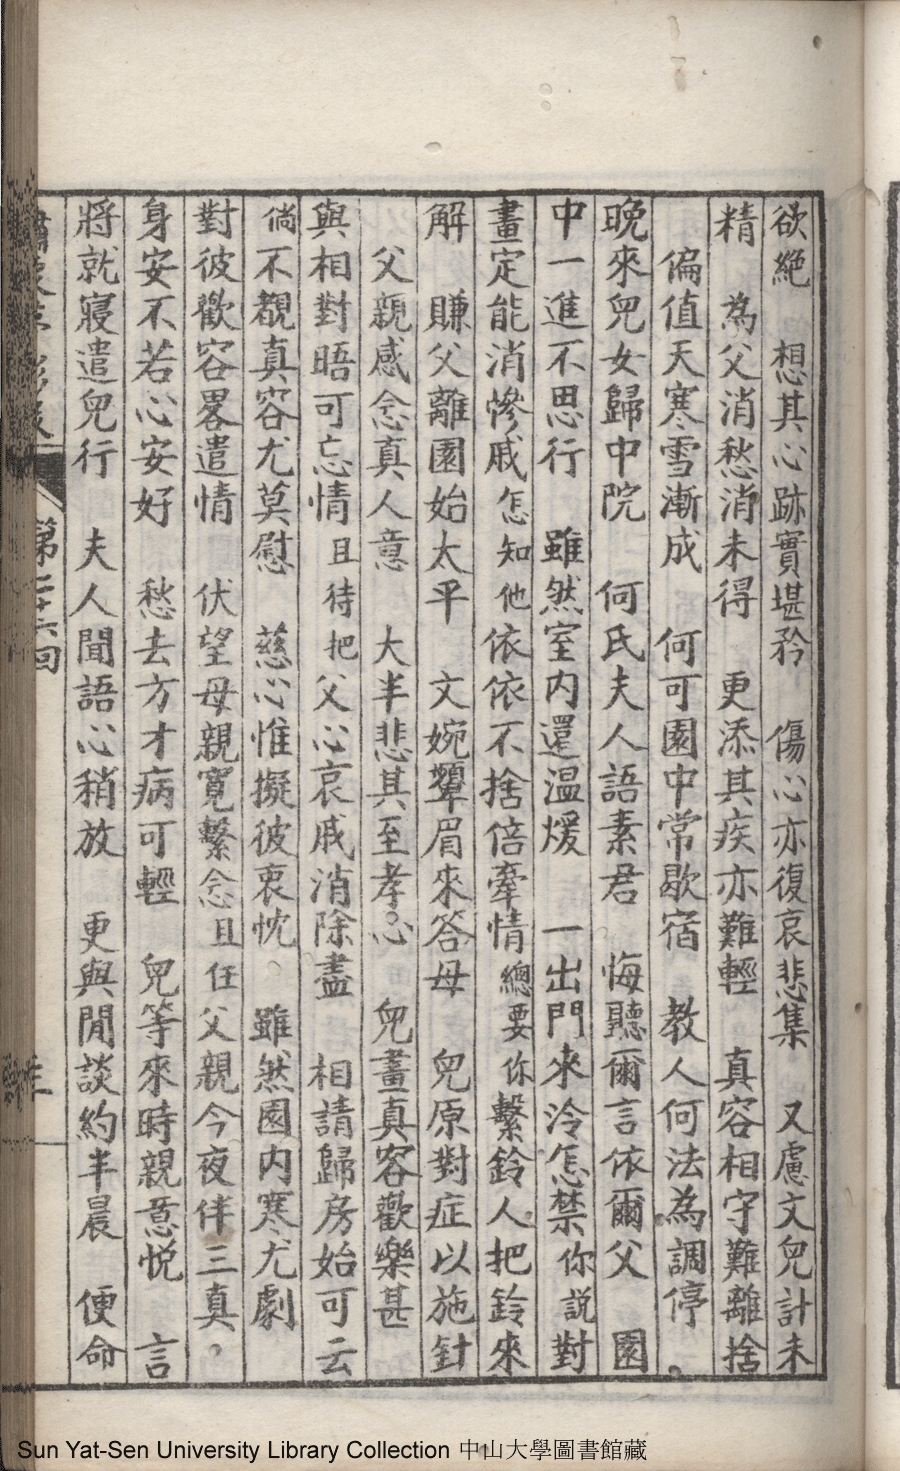 欲絕　想其心跡實堪矜　傷心亦復哀悲集　又慮文兒計未
精　為父消愁消未得　更添其疾亦難輕　真容相守難離捨
偏值天寒雪漸成　何可園中常歇宿　教人何法為調停。
晚來兒女歸中院　何氏夫人語素君　悔聽爾言依爾父　園
中一進不思行　雖然室内還温煖　一出門來冷怎禁　你說對
畫定能消慘戚　怎知他依依不捨倍牽情　總要你繫鈴人把鈴來
解　賺父離園始太平　文婉顰眉來答母　兒原對症以施針
父親感念真人意　大半悲其至孝心　兒畫真容歡樂甚
與相對晤可忘情　且待把父心哀戚消除盡　相請歸房始可云
倘不覩真容尤莫慰　慈心惟擬彼衷忱。　雖然園内寒尤劇
對彼歡容畧遣情　伏望母親寬繫念　且任父親今夜伴三真。
身安不若心安好　愁去方才病可輕　兒等來時親意悅　言
將就寢遣兒行　夫人聞語心稍放　更與閒談約半晨　便命
第二十六回
Sun Yat-Sen University Library Collection 中山大學圖書館藏